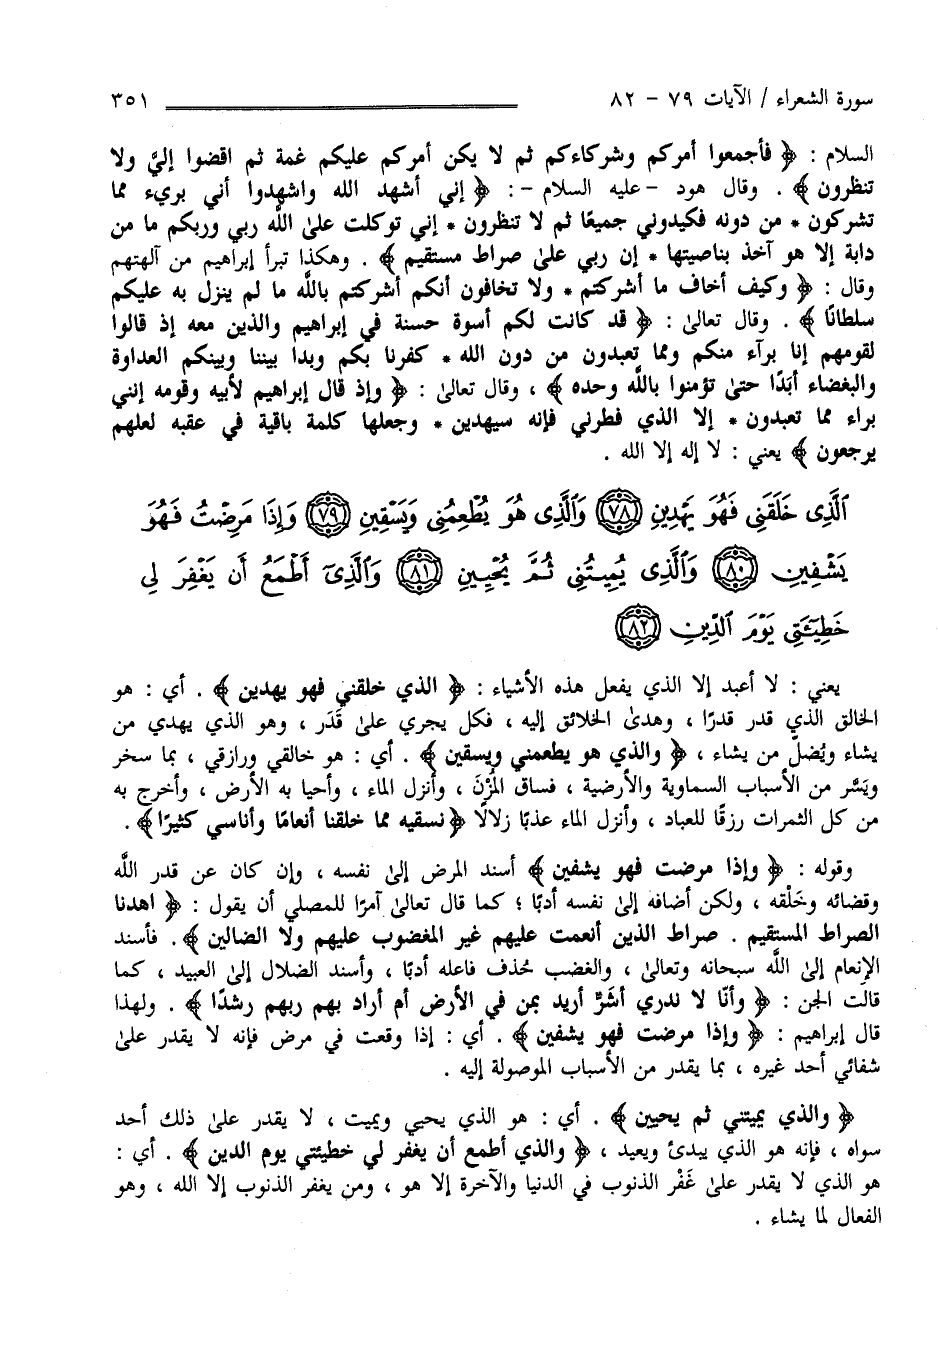 سورة الشعراء / الآيات ٧٩ - ٨٢ ٣٥١
السلام : ﴿ فأجمعوا أمركم وشركاءكم ثم لا يكن أمركم عليكم غمة ثم اقضوا إليَّ ولا
تنظرون ﴾ . وقال هود -عليه السلام -: ﴿ إني أشهد الله واشهدوا أني بريء مما
تشركون * من دونه فكيدوني جميعًا ثم لا تنظرون * إني توكلت علىٰ اللَّه ربي وربكم ما من
دابة إلا هو آخذ بناصيتها * إن ربي علىٰ صراط مستقيم ﴾ . وهكذا تبرأ إبراهيم من آلهتهم
وقال : ﴿ وكيف أخاف ما أشركتم * ولا تخافون أنكم أشركتم باللَّه ما لم ينزل به عليكم
سلطانًا ﴾ . وقال تعالىٰ : ﴿ قد كانت لكم أسوة حسنة في إبراهيم والذين معه إذ قالوا
لقومهم إنا برآء منكم ومما تعبدون من دون الله * كفرنا بكم وبدا بيننا وبينكم العداوة
والبغضاء أبَدًا حتىٰ تؤمنوا باللَّه وحده ﴾ ، وقال تعالىٰ : ﴿ وإذ قال إبراهيم لأبيه وقومه إنني
براء مما تعبدون * إلا الذي فطرني فإنه سيهدين * وجعلها كلمة باقية في عقبه لعلهم
يرجعون ﴾ يعني : لا إله إلا الله .
ٱلَّذِى خَلَقَنِى فَهُوَ يَهْدِينِ ﴿٧٨﴾ وَٱلَّذِى هُوَ يُطْعِمُنِى وَيَسْقِينِ ﴿٧٩﴾ وَإِذَا مَرِضْتُ فَهُوَ
يَشْفِينِ ﴿٨٠﴾ وَٱلَّذِى يُمِيتُنِى ثُمَّ يُحْيِينِ ﴿٨١﴾ وَٱلَّذِىٓ أَطْمَعُ أَن يَغْفِرَ لِى
خَطِيٓـَٔتِى يَوْمَ ٱلدِّينِ ﴿٨٢﴾
يعني : لا أعبد إلا الذي يفعل هذه الأشياء : ﴿ الذي خلقني فهو يهدين ﴾ . أي : هو
الخالق الذي قدر قدرًا ، وهدىٰ الخلائق إليه ، فكل يجري علىٰ قَدَر ، وهو الذي يهدي من
يشاء ويُضلّ من يشاء ، ﴿ والذي هو يطعمني ويسقين ﴾ . أي : هو خالقي ورازقي ، بما سخر
ويَسَّر من الأسباب السماوية والأرضية ، فساق المُزْنَ ، وأنزل الماء ، وأحيا به الأرض ، وأخرج به
من كل الثمرات رزقًا للعباد ، وأنزل الماء عذبًا زلالًا ﴿ نسقيه مما خلقنا أنعامًا وأناسي كثيرًا ﴾ .
وقوله : ﴿ وإذا مرضت فهو يشفين ﴾ أسند المرض إلىٰ نفسه ، وإن كان عن قدر اللَّه
وقضائه وخَلْقه ، ولكن أضافه إلىٰ نفسه أدبًا ؛ كما قال تعالىٰ آمرًا للمصلي أن يقول : ﴿ اهدنا
الصراط المستقيم . صراط الذين أنعمت عليهم غير المغضوب عليهم ولا الضالين ﴾ . فأسند
الإنعام إلىٰ اللَّه سبحانه وتعالىٰ ، والغضب حُذف فاعله أدبًا ، وأسند الضلال إلىٰ العبيد ، كما
قالت الجن : ﴿ وأنّا لا ندري أشَرٌّ أريد بمن في الأرض أم أراد بهم ربهم رشدًا ﴾ . ولهذا
قال إبراهيم : ﴿ وإذا مرضت فهو يشفين ﴾ . أي : إذا وقعت في مرض فإنه لا يقدر علىٰ
شفائي أحد غيره ، بما يقدر من الأسباب الموصولة إليه .
﴿ والذي يميتني ثم يحيين ﴾ . أي : هو الذي يحيي ويميت ، لا يقدر علىٰ ذلك أحد
سواه ، فإنه هو الذي يبدئ ويعيد ، ﴿ والذي أطمع أن يغفر لي خطيئتي يوم الدين ﴾ . أي :
هو الذي لا يقدر علىٰ غَفْر الذنوب في الدنيا والآخرة إلا هو ، ومن يغفر الذنوب إلا الله ، وهو
الفعال لما يشاء .